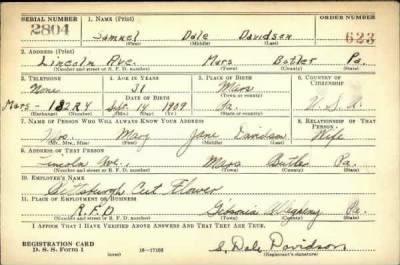 SERIAL NUMBER 1. NAME (Print) ORDER NUMBER
2804 Samuel Dale Davidson 623
(First) (Middle) (Last)
2. ADDRESS (Print)
Lincoln Ave. Mars Butler Pa.
(Number and street or R. F. D. number) (Town) (County) (State)
3. TELEPHONE 4. AGE IN YEARS 5. PLACE OF BIRTH 6. COUNTRY OF CITIZENSHIP
None 31 Mars
DATE OF BIRTH (Town or county)
Mars - 182R4 Sept. 14 1909 Pa. U.S.A.
(Exchange) (Number) (Mo.) (Day) (Yr.) (State or country)
7. NAME OF PERSON WHO WILL ALWAYS KNOW YOUR ADDRESS 8. RELATIONSHIP OF THAT PERSON
Mrs. Mary Jane Davidson Wife
(Mr., Mrs., Miss) (First) (Middle) (Last)
9. ADDRESS OF THAT PERSON
Lincoln Ave. Mars Butler Pa.
(Number and street or R. F. D. number) (Town) (County) (State)
10. EMPLOYER'S NAME
Pittsburgh Cut Flower
11. PLACE OF EMPLOYMENT OR BUSINESS
R.F.D Gibsonia Allegheny Pa.
(Number and street or R. F. D. number) (Town) (County) (State)
I AFFIRM THAT I HAVE VERIFIED ABOVE ANSWERS AND THAT THEY ARE TRUE.
REGISTRATION CARD
D. S. S. Form 1 (over) 16-17105 S. Dale Davidson
(Registrant's signature)